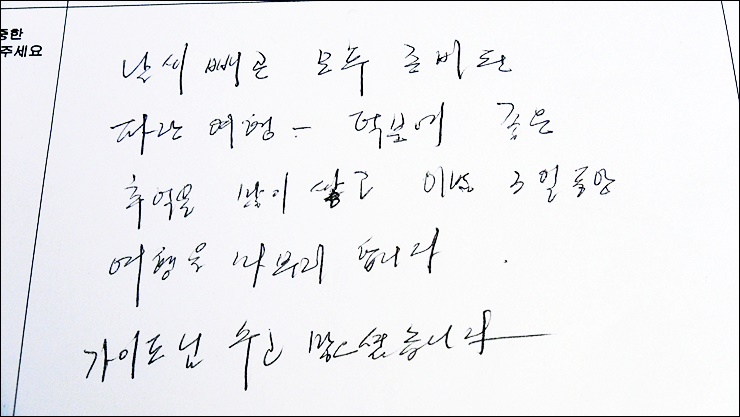 중한
주세요
날씨 빼곤 모두 준비된
파란여행 - 덕분에 좋은
추억을 많이 쌓고 3일동안
여행을 마무리 합니다.
가이드님 수고 많으셨습니다